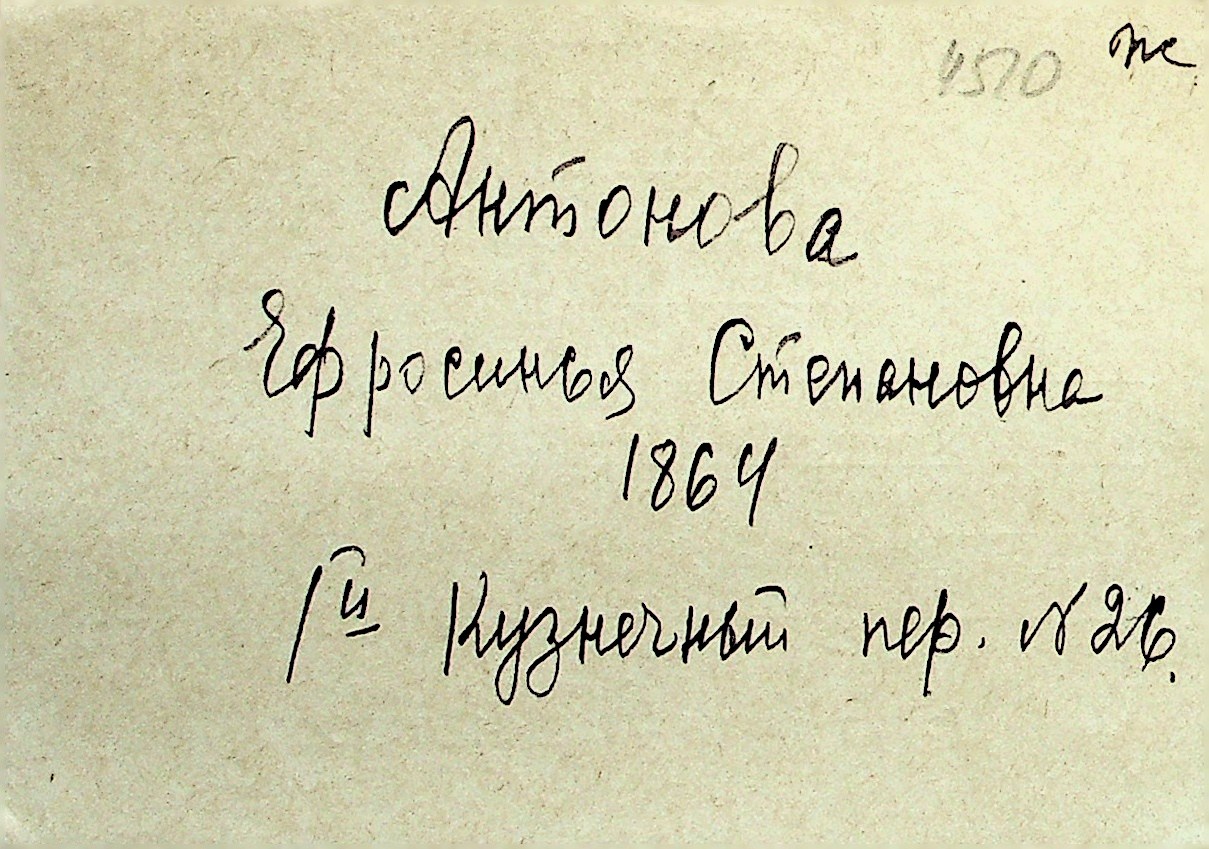 4570 ж
Антонова
Ефросинья Степановна
1864
1й Кузнечный пер. № 26.